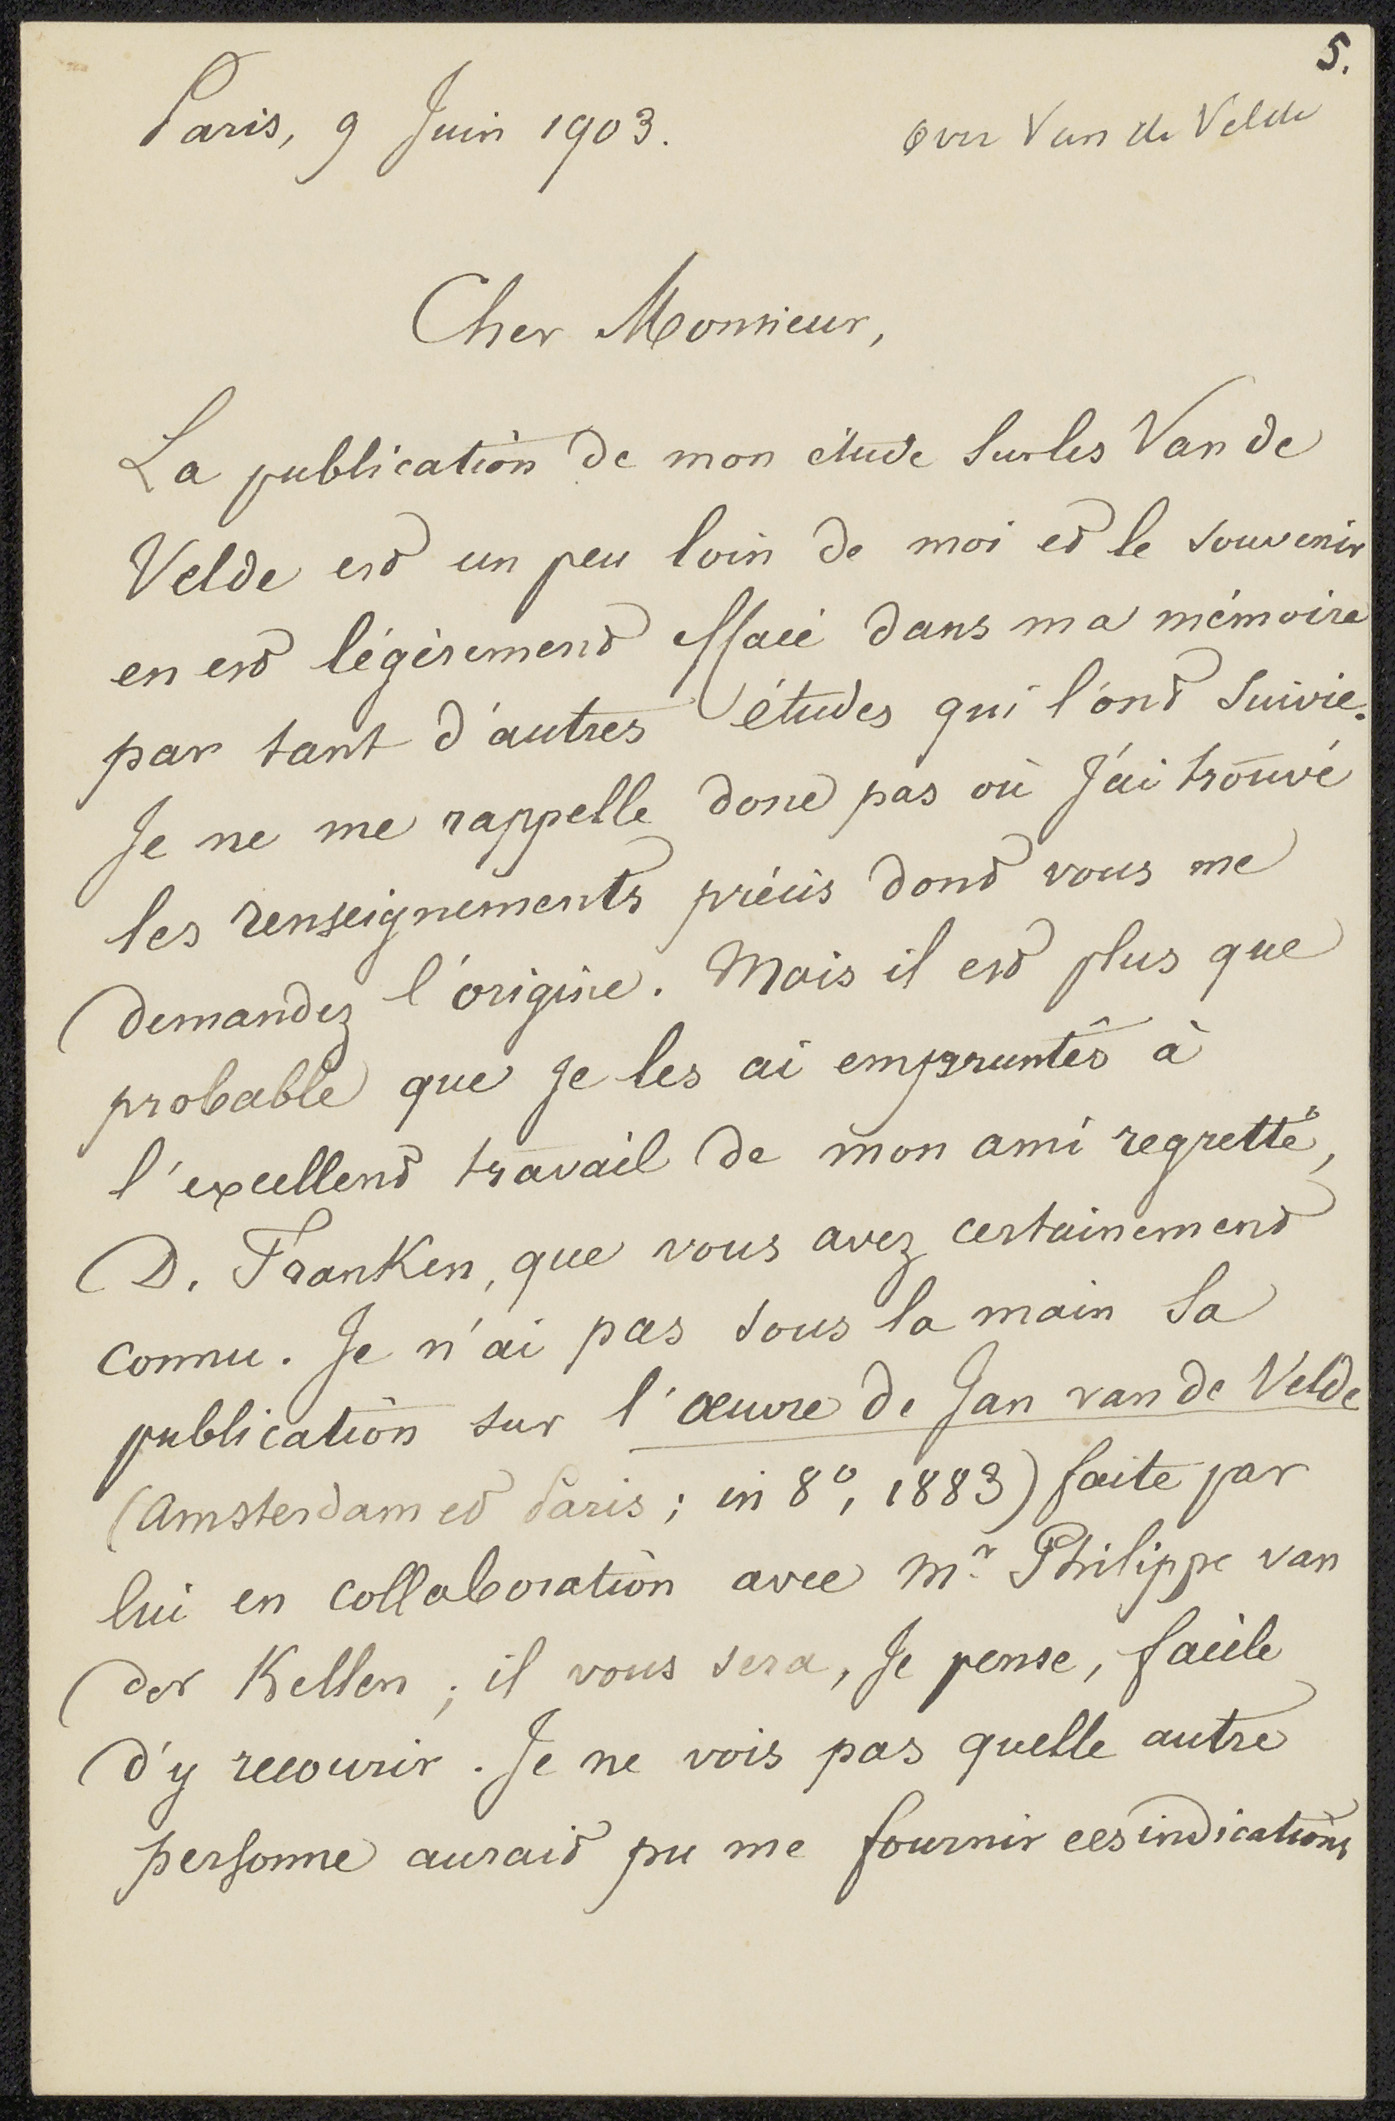 5.
Paris, 9 Juin 1903.
over Van de Velde
Cher Monsieur,
La publication de mon étude sur les Van de
Velde est un peu loin de moi et le souvenir
en est légèrement effacé dans ma mémoire
par tant d'autres études qui l'ont suivie.
Je ne me rappelle donc pas où j'ai trouvé
les renseignements précis dont vous me
demandez l'origine. Mais il est plus que
probable que je les ai empruntés à
l'excellent travail de mon ami regretté,
D. Franken, que vous avez certainement
connu. Je n'ai pas sous la main sa
publication sur l'œuvre de Jan van de Velde
(Amsterdam et Paris; in 8º, 1883) faite par
lui en collaboration avec Mr. Philippe van
der Kellen; il vous sera, je pense, facile
d'y recourir. Je ne vois pas quelle autre
personne aurait pu me fournir ces indications